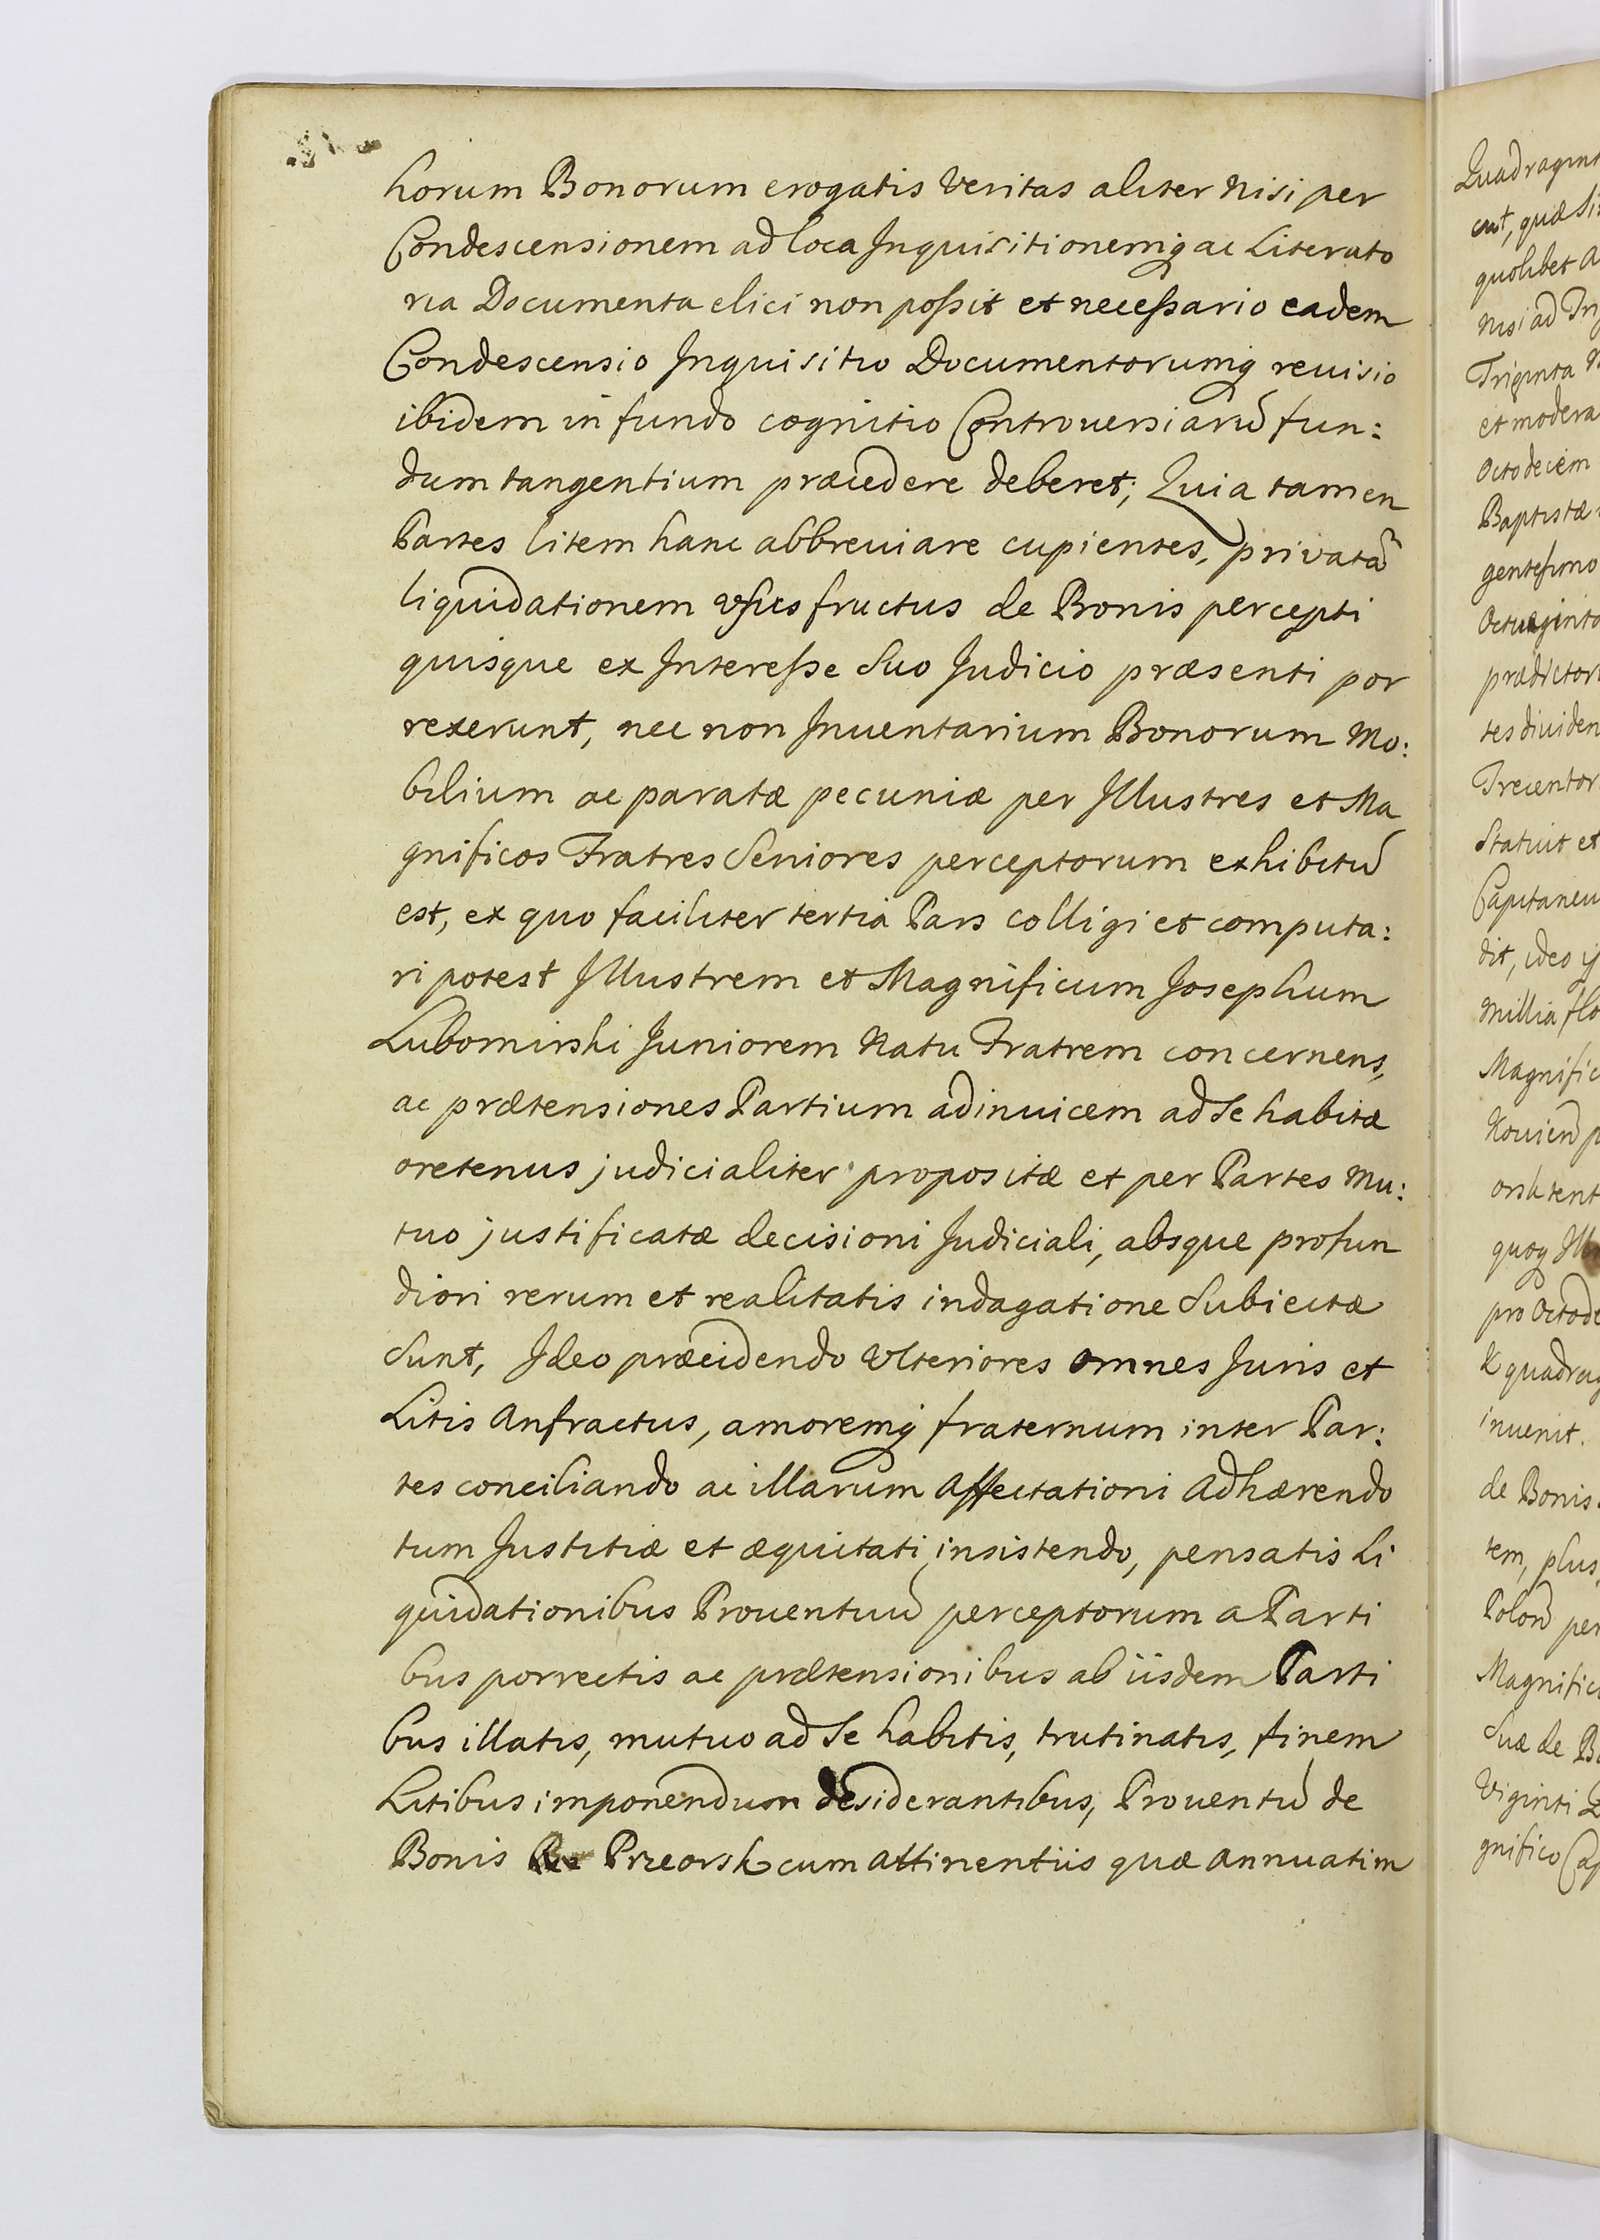 horum Bonorum erogatis veritas aliter nisi per
Condescensionem ad loca Inquisitionemq ac Literato
ria Documenta elici non poßit et neceßario eadem
Condescensio Inquisitio Documentorumq reuisio
ibidem in fundo cognitio Controuersiarũ fun:
dum tangentium præcedere deberet; Quia tamen
Partes litem hanc abbreuiare cupientes, privatã
liquidationem vsusfructus de Bonis percepti
quisque ex Intereße suo Judicio præsenti por
rexerunt, nec non Inuentarium Bonorum Mo:
bilium ac paratæ pecuniæ per Illustres et Ma
gnificos Fratres Seniores perceptorum exhibitũ
est, ex quo faciliter tertia Pars colligi et computa:
ri potest Illustrem et Magnificum Josephum
Lubomirski Juniorem Natu Fratrem concernens,
ac prætensiones Partium adinuicem ad se habitæ
oretenus judicialiter propositæ et per Partes Mu:
tuo justificatæ decisioni Judiciali, absque profun
diori rerum et realitatis indagatione Subiectæ
Sunt, Ideo præcidendo Vlteriores omnes Juris et
Litis Anfractus, amoremq fraternum inter Par:
tes conciliando ac illarum Affectationi Adhærendo
tum Justitiæ et æquitati insistendo, pensatis Li
quidationibus Prouentuũ perceptorum a Parti
bus porrectis ac prætensionibus ab iisdem Parti
bus illatis, mutuo ad se habitis, trutinatis, finem
Litibus imponendum desiderantibus, Prouentũ de
Bonis Przeorsk cum Attinentiis quæ annuatim
Quadragint
quolibet A
nisi ad Tri
Triginta
et modera
Octodecim
Baptistæ
gentesimo
prædictor
tes diuiden
Trecentor
Statuit et
Capitaneu
dit, ideo
Millia flo
Magnific
quoq Ill
pro Octode
inuenit.
de Bonis
tem, plus
Polon̄ per
Magnific
Suæ de Bo
Viginti
gnifico Cap